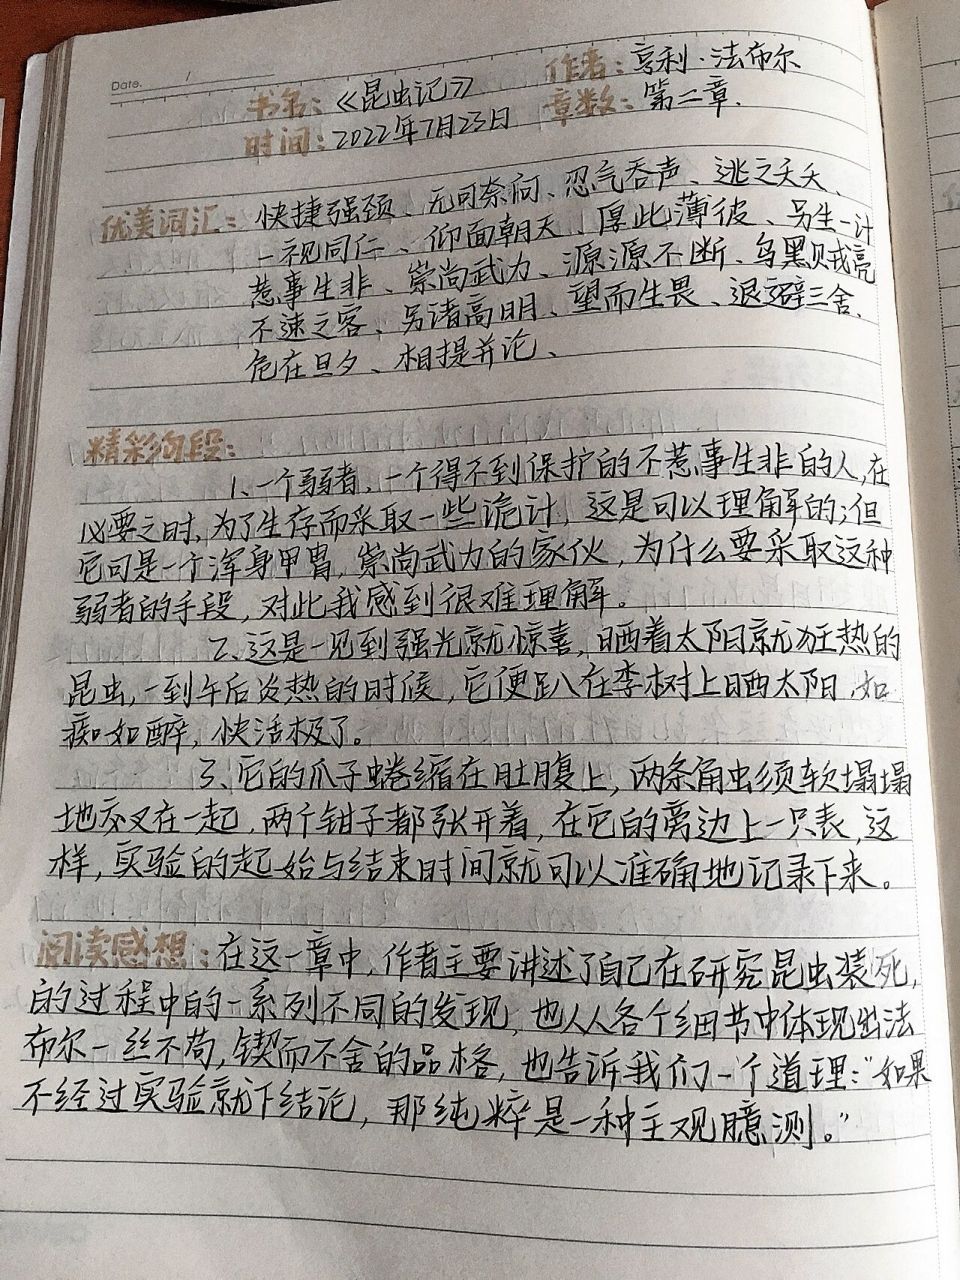 Date. /
书名：《昆虫记》 作者：亨利·法布尔
时间：2022年7月23日 章数：第二章.
优美词汇：快捷强颈、无可奈何、忍气吞声、逃之夭夭、
一视同仁、仰面朝天、厚此薄彼、另生一计
惹事生非、崇尚武力、源源不断、乌黑贼亮
不速之客、另诸高明、望而生畏、退避三舍、
危在旦夕、相提并论、
精彩句段：
1、一个弱者，一个得不到保护的不惹事生非的人,在
必要之时,为了生存而采取一些诡计，这是可以理解的;但
它可是一个浑身甲胄,崇尚武力的家伙，为什么要采取这种
弱者的手段，对此我感到很难理解。
2、这是一见到强光就惊喜，晒着太阳就狂热的
昆虫,一到午后炎热的时候，它便趴在李树上晒太阳,如
痴如醉，快活极了。
3、它的爪子蜷缩在肚腹上，两条角虫须软塌塌
地交叉在一起,两个钳子都张开着，在它的旁边上一只表,这
样,实验的起始与结束时间就可以准确地记录下来。
阅读感想：在这一章中,作者主要讲述了自己在研究昆虫装死,
的过程中的一系列不同的发现，也从各个细节中体现出法
布尔一丝不苟,锲而不舍的品格，也告诉我们一个道理：“如果
不经过实验就下结论，那纯粹是一种主观臆测。”